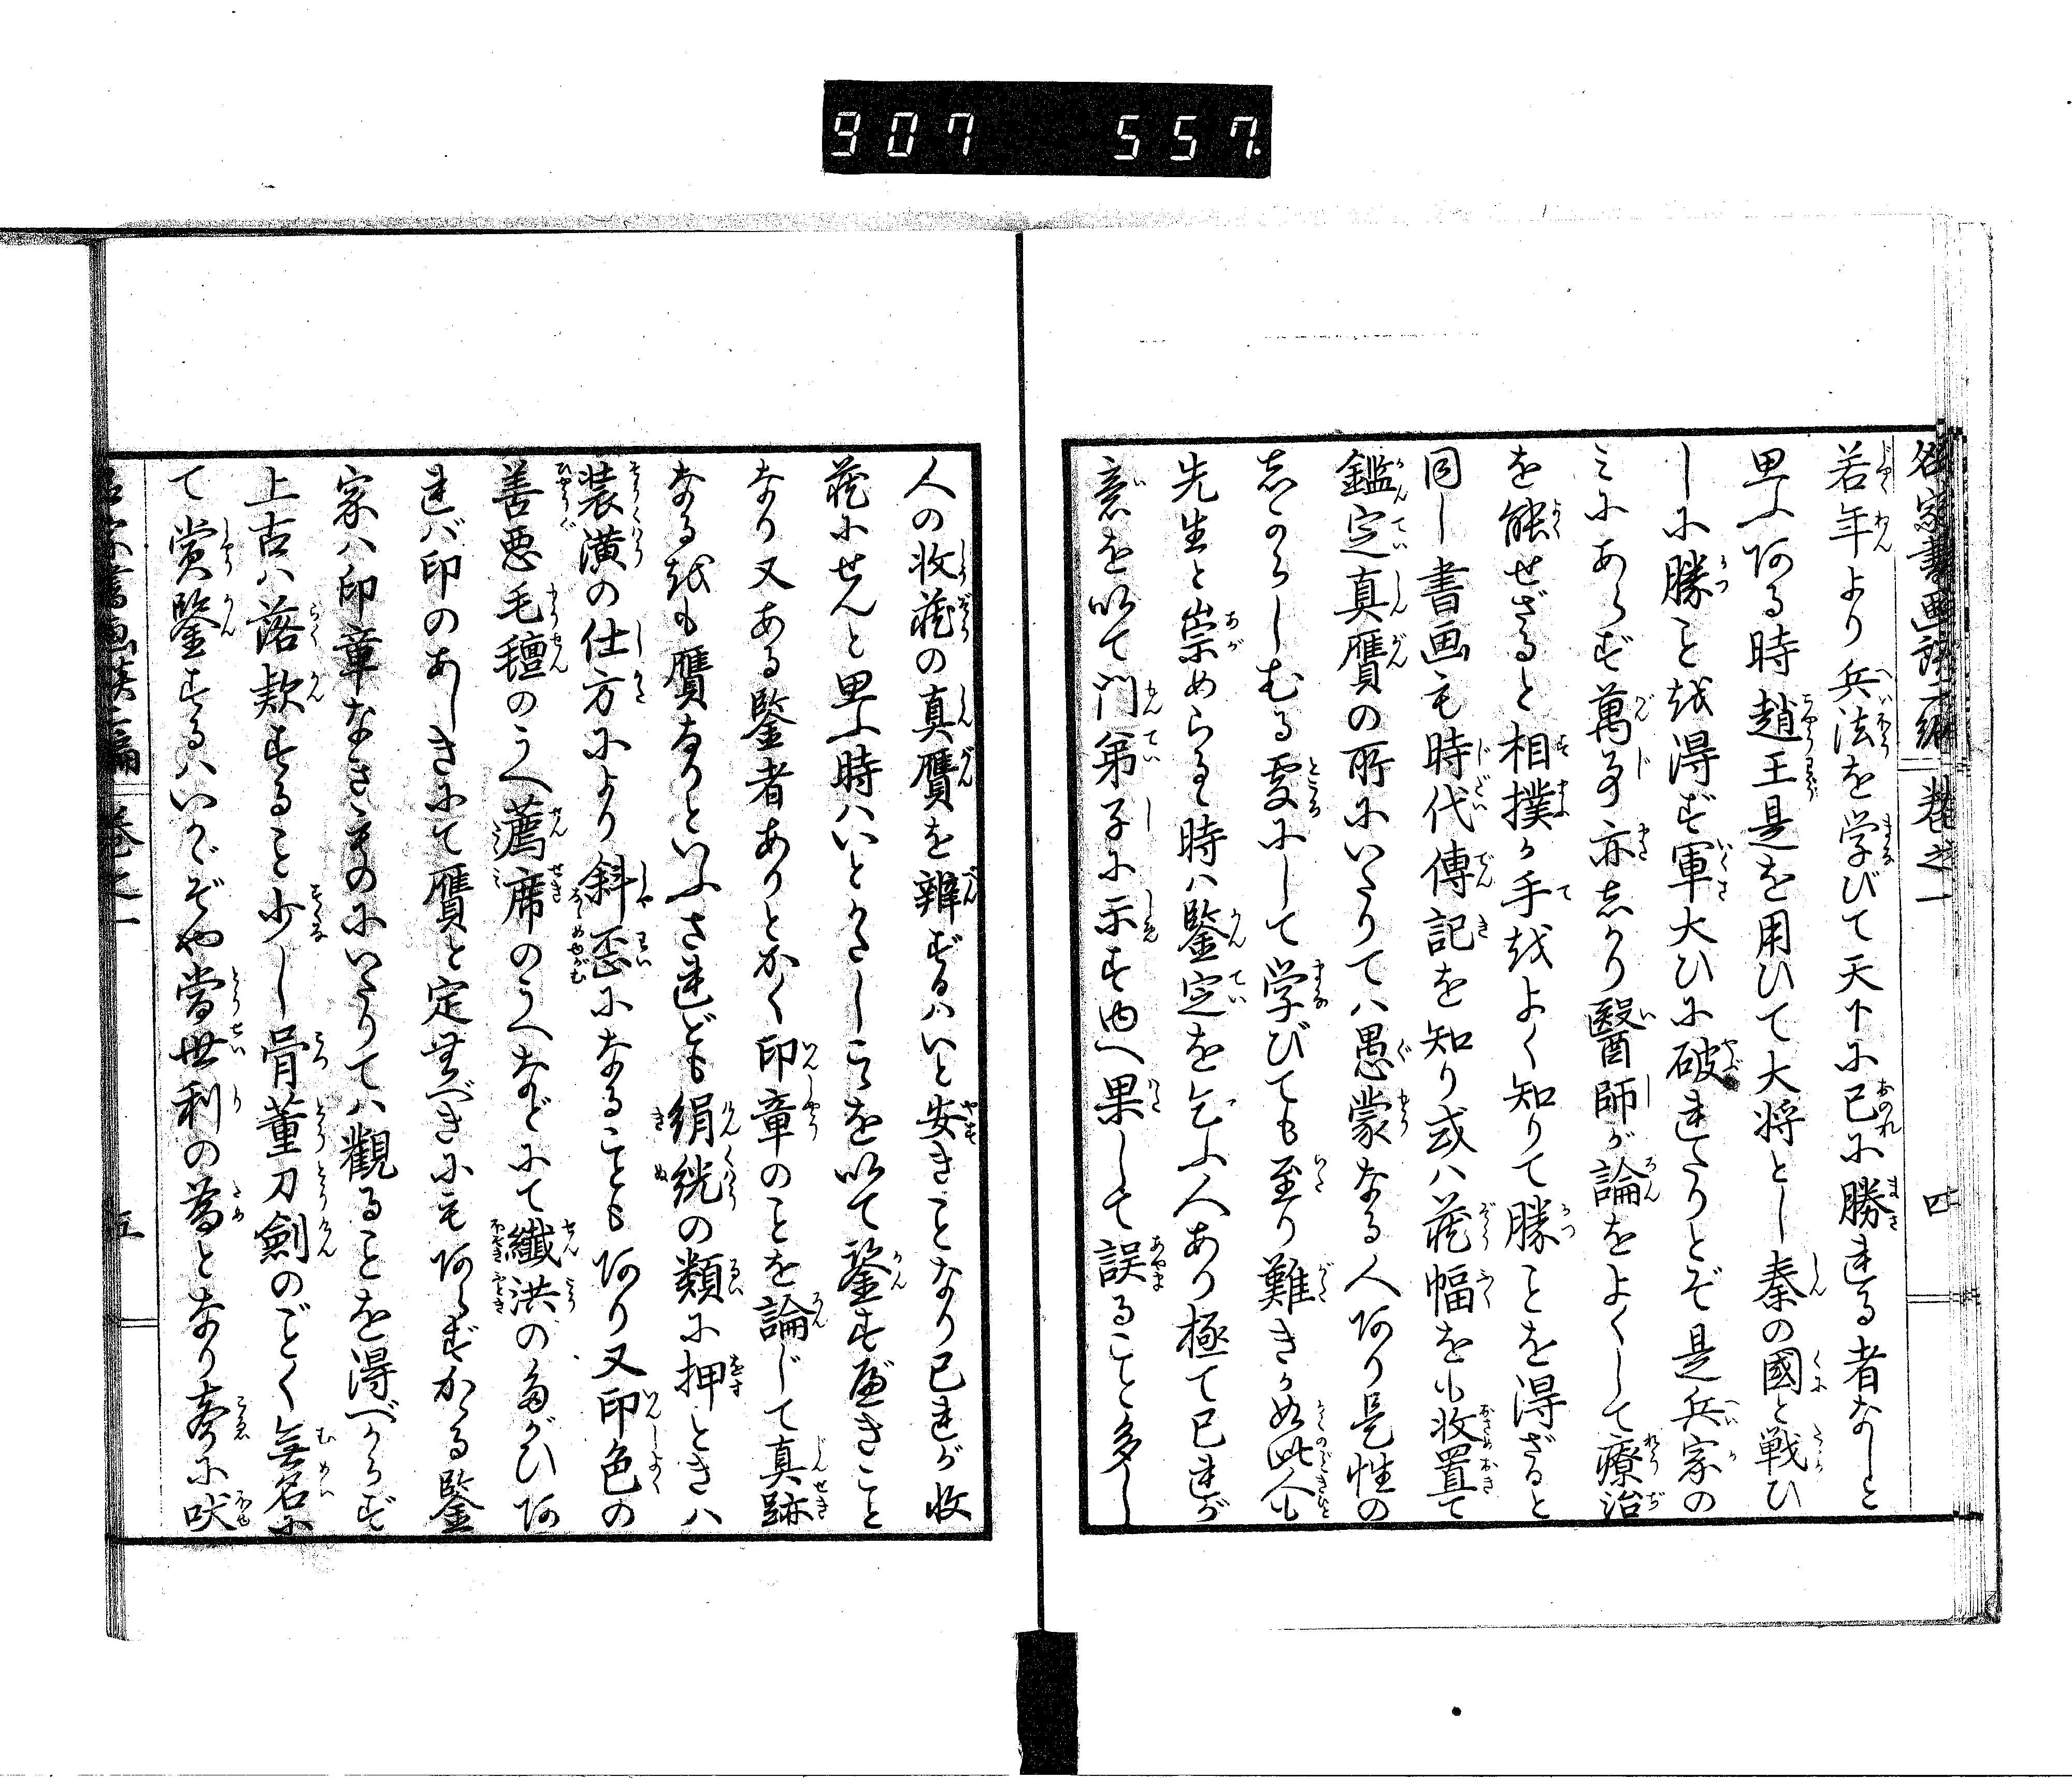 907 557
名家書画談二編 巻之一 四
若年より兵法を学びて天下に己に勝れる者なしと
思ふある時趙王是を用ひて大将とし秦の國と戦ひ
しに勝ことを得ず軍大ひに破れたりとぞ是兵家の
ミにあらず萬事亦志かり醫師が論をよくして療治
を能せざると相撲が手をよく知りて勝ことを得ざると
同し書画も時代傳記を知り或ハ蔵幅をも收置て
鑑定真贋の所にいたりてハ愚蒙なる人あり是性の
志からしむる処にして学びても至り難きか如此人も
先生と崇めらるゝ時ハ鑒定を乞ふ人あり極て己れが
意を以て門弟子に示す内へ果して誤ること多し
人の收蔵の真贋を辨ずるハいと安きことなり己れが收
蔵にせんと思ふ時ハいとかたしこゝを以て鑒すべきこと
なり又ある鑒者ありとかく印章のことを論じて真跡
なるをも贋なりといふされども絹絖の類に押ときハ
装潢の仕方により斜歪になることもあり又印色の
善悪毛氊のうへ薦席のうへなどにて纖洪のたがひあ
れバ印のあしきにて贋と定むべきにもあらずかゝる鑒
家ハ印章なきものにいたりてハ觀ることを得べからず
上古ハ落款することめ少し骨董刀劍のごとく無名に
て賞鑒するハいかゞぞや當世利の為となり声に吠
名家書画談二編 巻之一 五